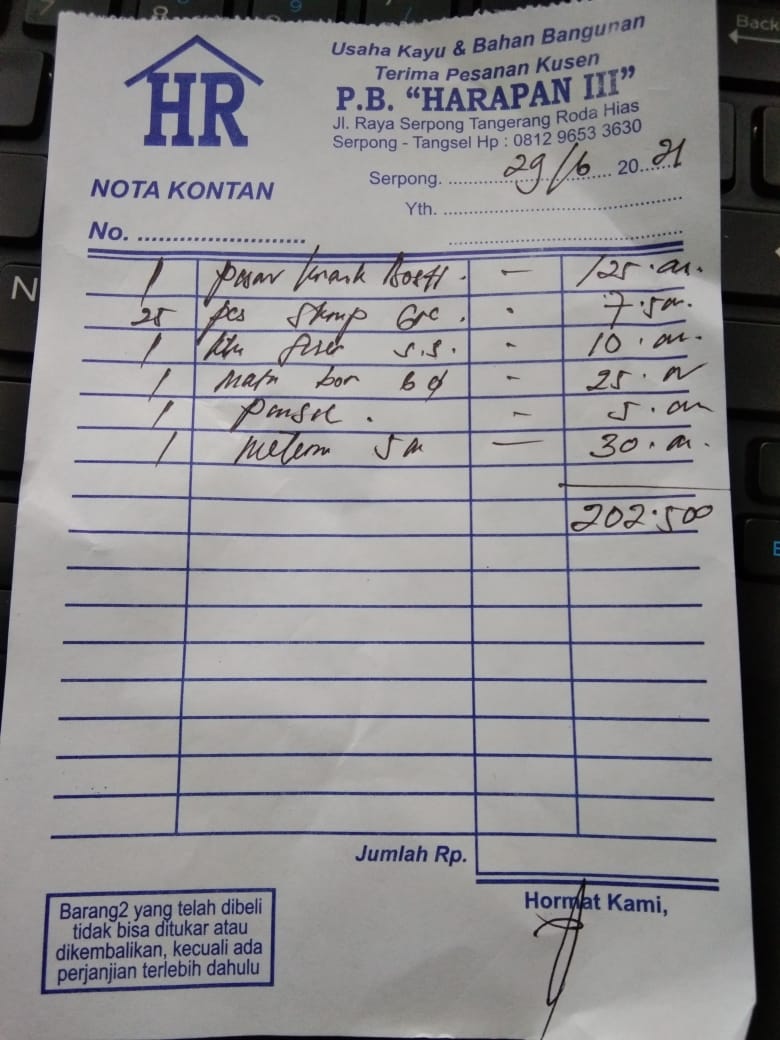 HR
Usaha Kayu & Bahan Bangunan
Terima Pesanan Kusen
P.B. “HARAPAN III”
Jl. Raya Serpong Tangerang Roda Hias
Serpong - Tangsel Hp : 0812 9653 3630
Serpong. 29/6 20 21
NOTA KONTAN
Yth.
No.
1 - 125.
25 pcs - 7.5
1 s.s. - 10.
1 mata bor 6 - 25.
1 - 5.
1 meteran 5 m - 30.
202.500
Jumlah Rp.
Hormat Kami,
Barang2 yang telah dibeli
tidak bisa ditukar atau
dikembalikan, kecuali ada
perjanjian terlebih dahulu
Back
N